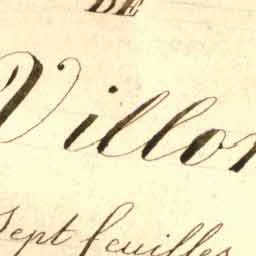 DE
Villon
Sept feuilles